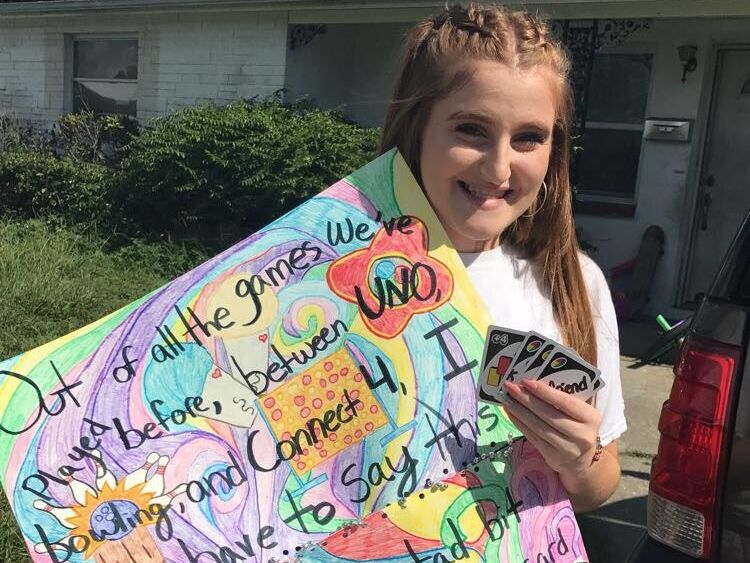 Out of all the games We've
played before, between UNO,
bowling, and Connect 4, I
have to Say this
tad bit
card
+4
friend